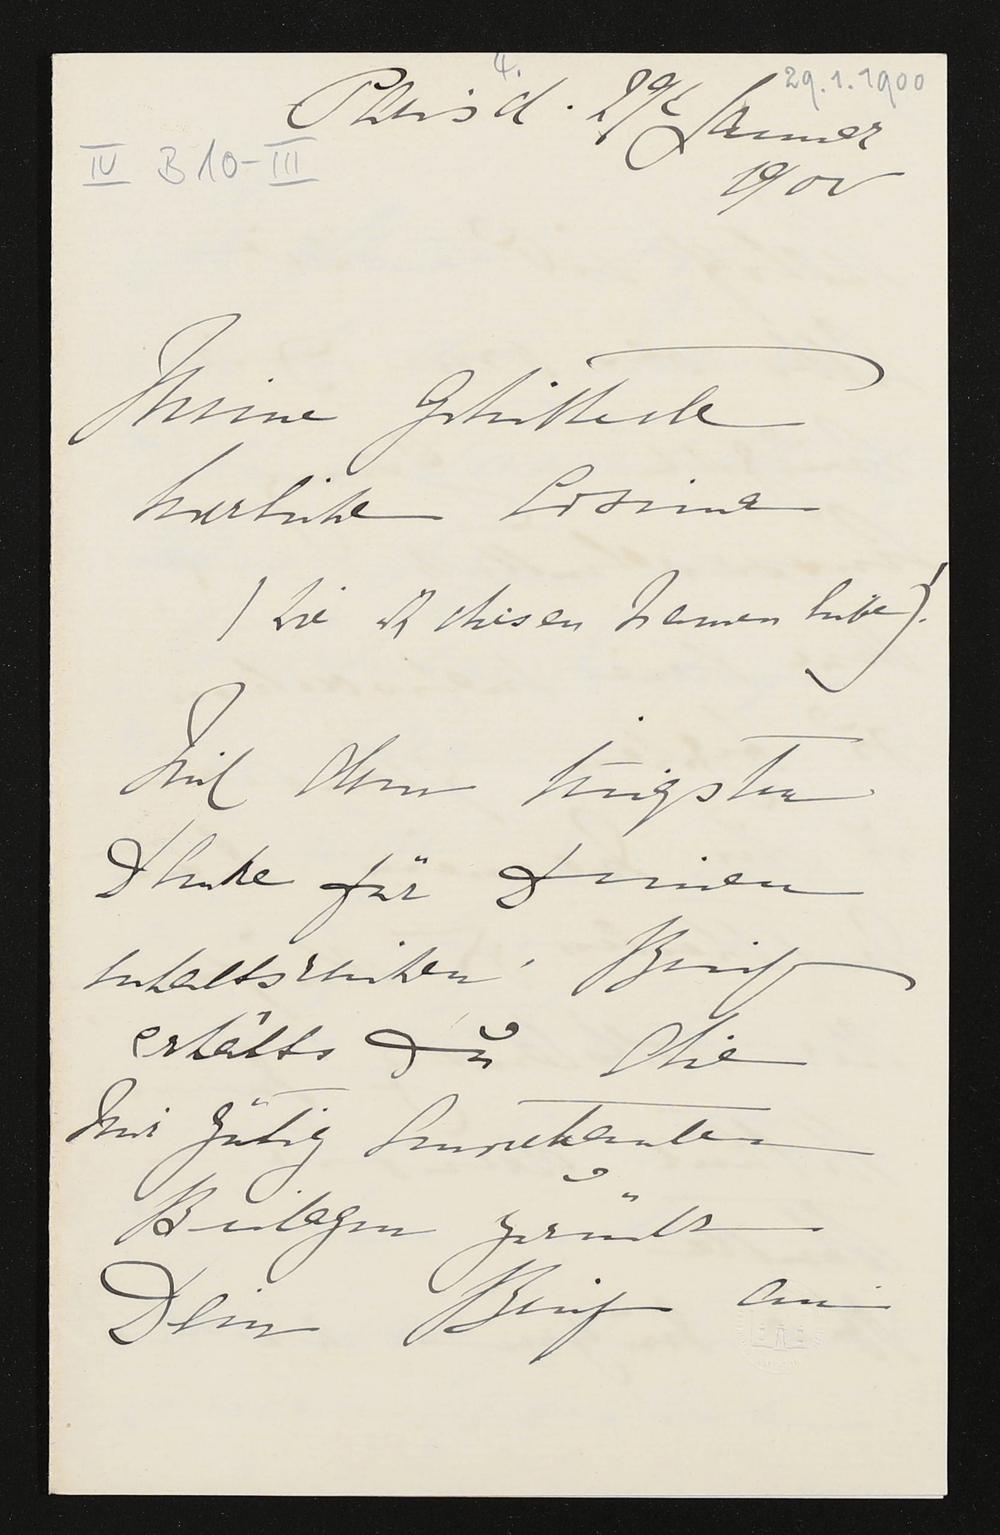 4.
29.1.1900
29t Januar
IV B 10-III
1900
Meine Geliebteste
herrliche Cosima
(wie ich diesen Namen liebe)!
Mit dem innigsten
Danke für Deinen
inhaltsreichen Brief
erhältst Du die
mir gütig anvertrauten
Beilagen zurück
Dein Brief an